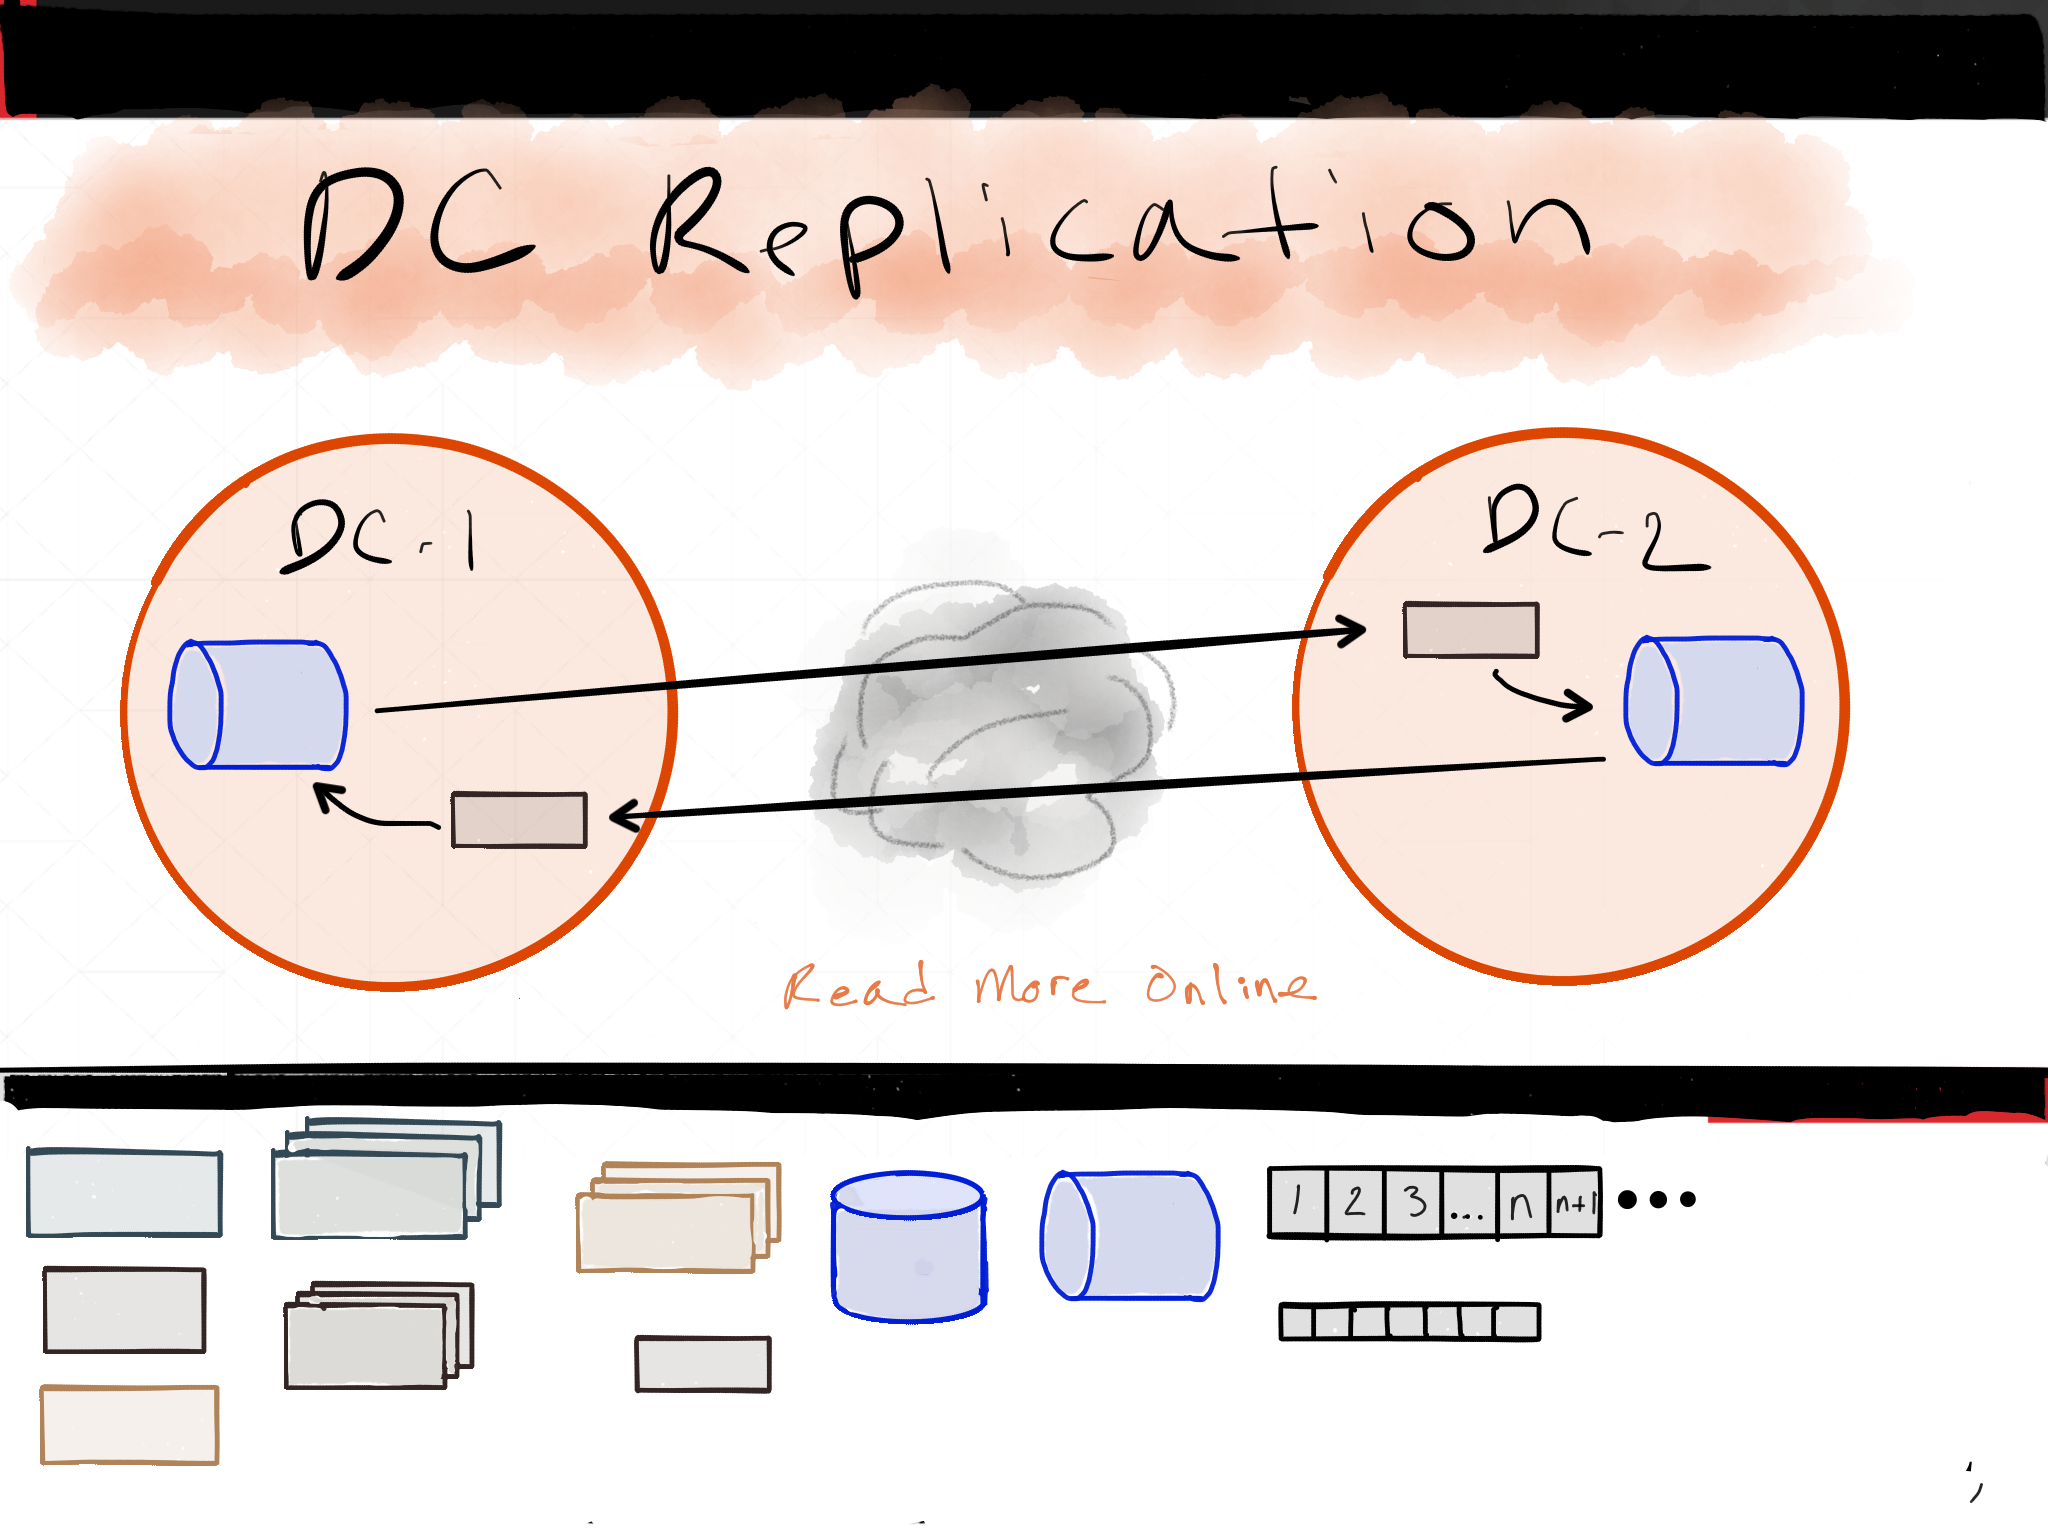 DC Replication
DC-1
DC-2
Read More Online
1 2 3 ... n n+1 •••